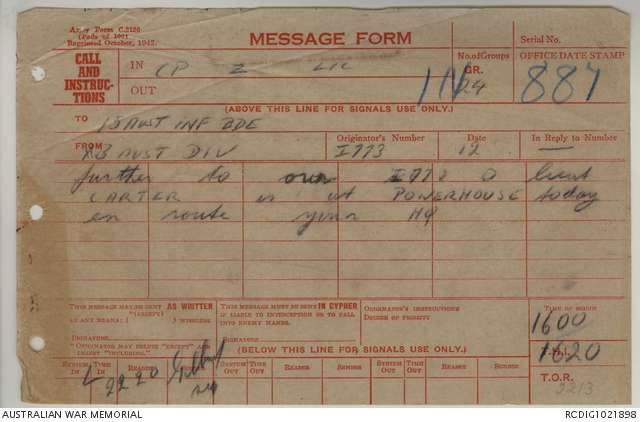 Army Form C.2128
(Pads of 100)
Reprinted October, 1942.
MESSAGE FORM
Serial No.
CALL AND INSTRUCTIONS
IN CP 2 LIL
No. of Groups
GR. 24
OFFICE DATE STAMP
OUT
IN 887
(ABOVE THIS LINE FOR SIGNALS USE ONLY.)
TO 18 AUST INF BDE
FROM Originator's Number Date In Reply to Number
AUST DIV I773 12 —
further to our I772 O
CARTER is at POWERHOUSE today
en route your HQ
THIS MESSAGE MAY BE SENT AS WRITTEN
BY ANY MEANS WIRELESS
SIGNATURE.
THIS MESSAGE MUST BE SENT IN CYPHER
IF LIABLE TO INTERCEPTION OR TO FALL
INTO ENEMY HANDS.
SIGNATURE
ORIGINATOR'S INSTRUCTIONS
DEGREE OF PRIORITY
TIME OF ORIGIN
1600
1620
(BELOW THIS LINE FOR SIGNALS USE ONLY.)
SYSTEM IN TIME IN READER SENDER SYSTEM OUT TIME OUT READER SENDER SYSTEM OUT TIME OUT READER SENDER
L 2220
T.O.R.
2213
AUSTRALIAN WAR MEMORIAL RCDIG1021898